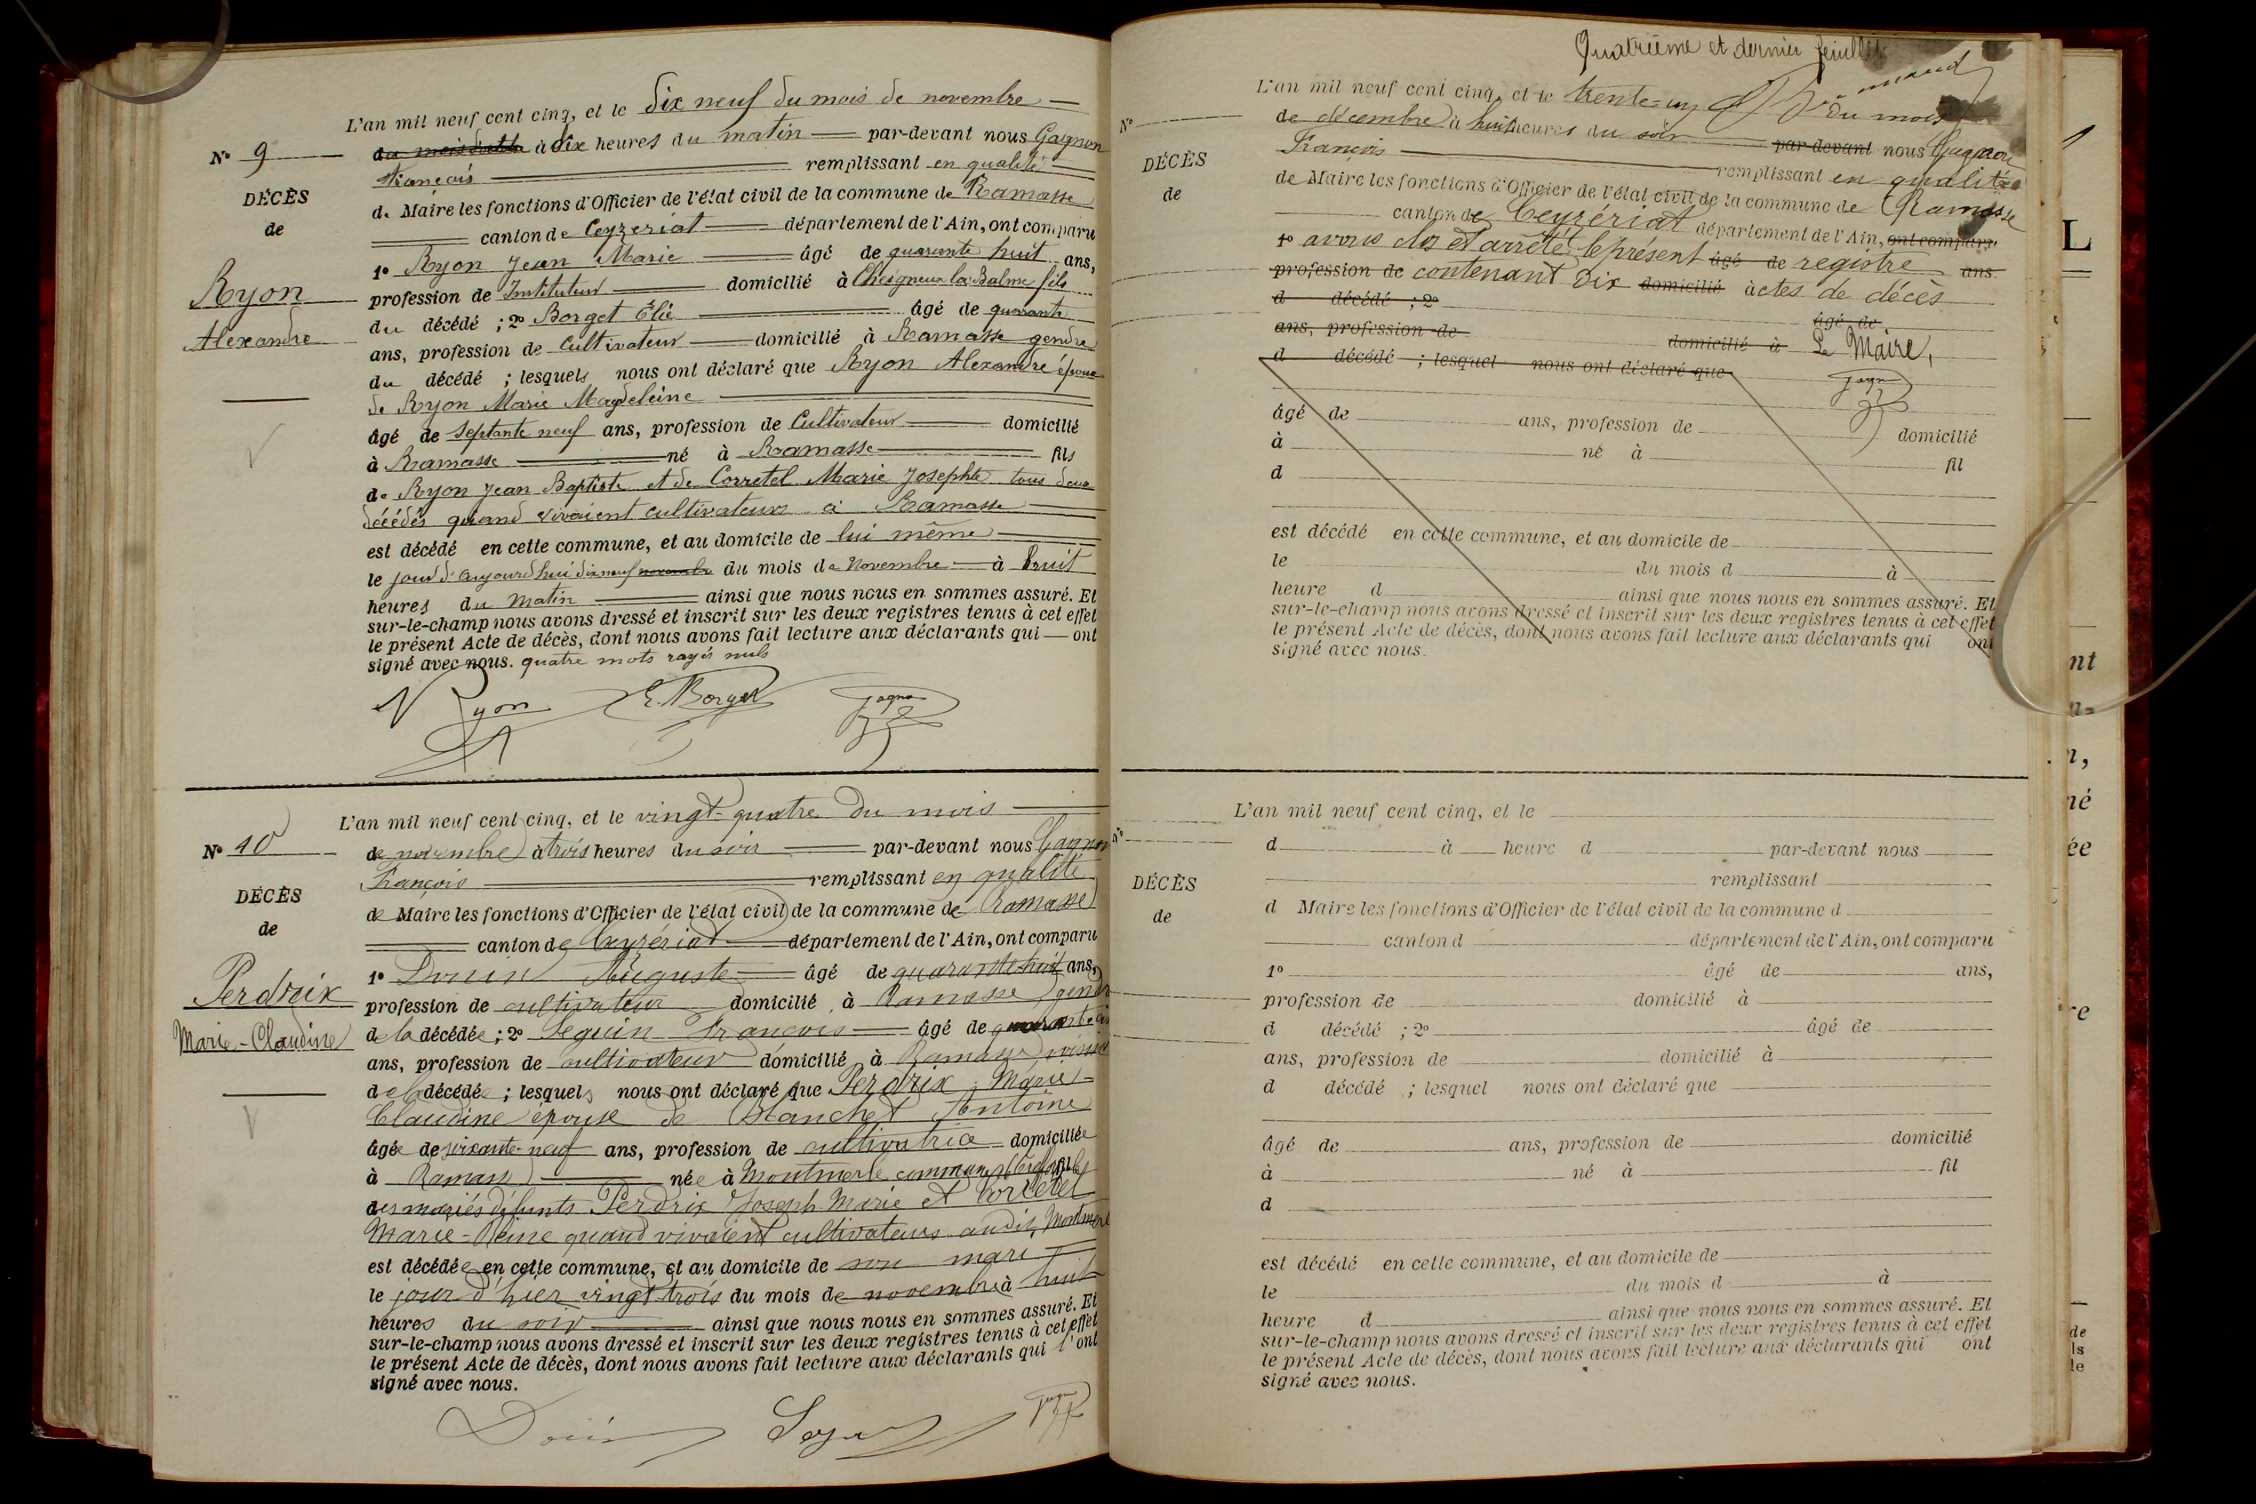 L'an mil neuf cent cinq, et le dix neuf du mois de novembre
N° 9
à dix heures du matin par-devant nous Gagnon
François remplissant en qualité
DÉCÈS
de Maire les fonctions d'Officier de l'état civil de la commune de Ramasse
de
canton de Ceyzeriat département de l'Ain, ont comparu
1° Ryon Jean Marie âgé de quarante huit ans,
Ryon
profession de Instituteur domicilié à Cheigneux la Balme fils
du décédé ; 2° Borget Élie âgé de quarante
Alexandre
ans, profession de Cultivateur domicilié à Ramasse gendre
du décédé ; lesquels nous ont déclaré que Ryon Alexandre époux
de Ryon Marie Magdeleine
âgé de septante neuf ans, profession de Cultivateur domicilié
à Ramasse né à Ramasse fils
de Ryon Jean Baptiste et de Corretel Marie Josephte tous deux
décédés quand vivaient cultivateurs à Ramasse
est décédé en cette commune, et au domicile de lui même
le jour d'aujourd'hui dix neuf novembre du mois de Novembre à huit
heures du matin ainsi que nous nous en sommes assuré. Et
sur-le-champ nous avons dressé et inscrit sur les deux registres tenus à cet effet
le présent Acte de décès, dont nous avons fait lecture aux déclarants qui ont
signé avec nous. quatre mots rayés nuls
Ryon E. Borget Gagnon
L'an mil neuf cent cinq, et le vingt-quatre du mois
N° 10
de novembre à trois heures du soir par-devant nous Gagnon
François remplissant en qualité
DÉCÈS
de Maire les fonctions d'Officier de l'état civil de la commune de Ramasse
de
canton de Ceyzériat département de l'Ain, ont comparu
1° Douin Auguste âgé de quarante huit ans,
Perdrix
profession de cultivateur domicilié à Ramasse gendre
Marie-Claudine
de la décédée ; 2° Seguin François âgé de
ans, profession de cultivateur domicilié à Ramasse voisin
de la décédée ; lesquels nous ont déclaré que Perdrix Marie
Claudine épouse de Blanchet Antoine
âgée de soixante-neuf ans, profession de cultivatrice domiciliée
à Ramasse née à Montmerle commune fille
des mariés défunts Perdrix Joseph Marie et Corretel
Marie-Reine quand vivaient cultivateurs audit Montmerle
est décédée en cette commune, et au domicile de son mari
le jour d'hier vingt-trois du mois de novembre à huit
heures du soir ainsi que nous nous en sommes assuré. Et
sur-le-champ nous avons dressé et inscrit sur les deux registres tenus à cet effet
le présent Acte de décès, dont nous avons fait lecture aux déclarants qui l'ont
signé avec nous.
Douin Seguin
Quatrième et dernier feuillet
L'an mil neuf cent cinq, et le trente-un du mois
N°
de décembre à huit heures du soir par-devant nous Gagnon
François remplissant en qualité
DÉCÈS
de Maire les fonctions d'Officier de l'état civil de la commune de Ramasse
de
canton de Ceyzériat département de l'Ain, ont comparu
1° avons clos et arrêté le présent âgé de registre ans.
profession de contenant dix domicilié actes de décès
d décédé ; 2° âgé de
ans, profession de domicilié à Le Maire,
d décédé ; lesquel nous ont déclaré que
Gagnon
âgé de ans, profession de domicilié
à né à fil
d
est décédé en cette commune, et au domicile de
le du mois d à
heure d ainsi que nous nous en sommes assuré. Et
sur-le-champ nous avons dressé et inscrit sur les deux registres tenus à cet effet
le présent Acte de décès, dont nous avons fait lecture aux déclarants qui ont
signé avec nous.
L'an mil neuf cent cinq, et le
N°
d à heure d par-devant nous
remplissant
DÉCÈS
d Maire les fonctions d'Officier de l'état civil de la commune d
de
canton d département de l'Ain, ont comparu
1° âgé de ans,
profession de domicilié à
d décédé ; 2° âgé de
ans, profession de domicilié à
d décédé ; lesquel nous ont déclaré que
âgé de ans, profession de domicilié
à né à fil
d
est décédé en cette commune, et au domicile de
le du mois d à
heure d ainsi que nous nous en sommes assuré. Et
sur-le-champ nous avons dressé et inscrit sur les deux registres tenus à cet effet
le présent Acte de décès, dont nous avons fait lecture aux déclarants qui ont
signé avec nous.